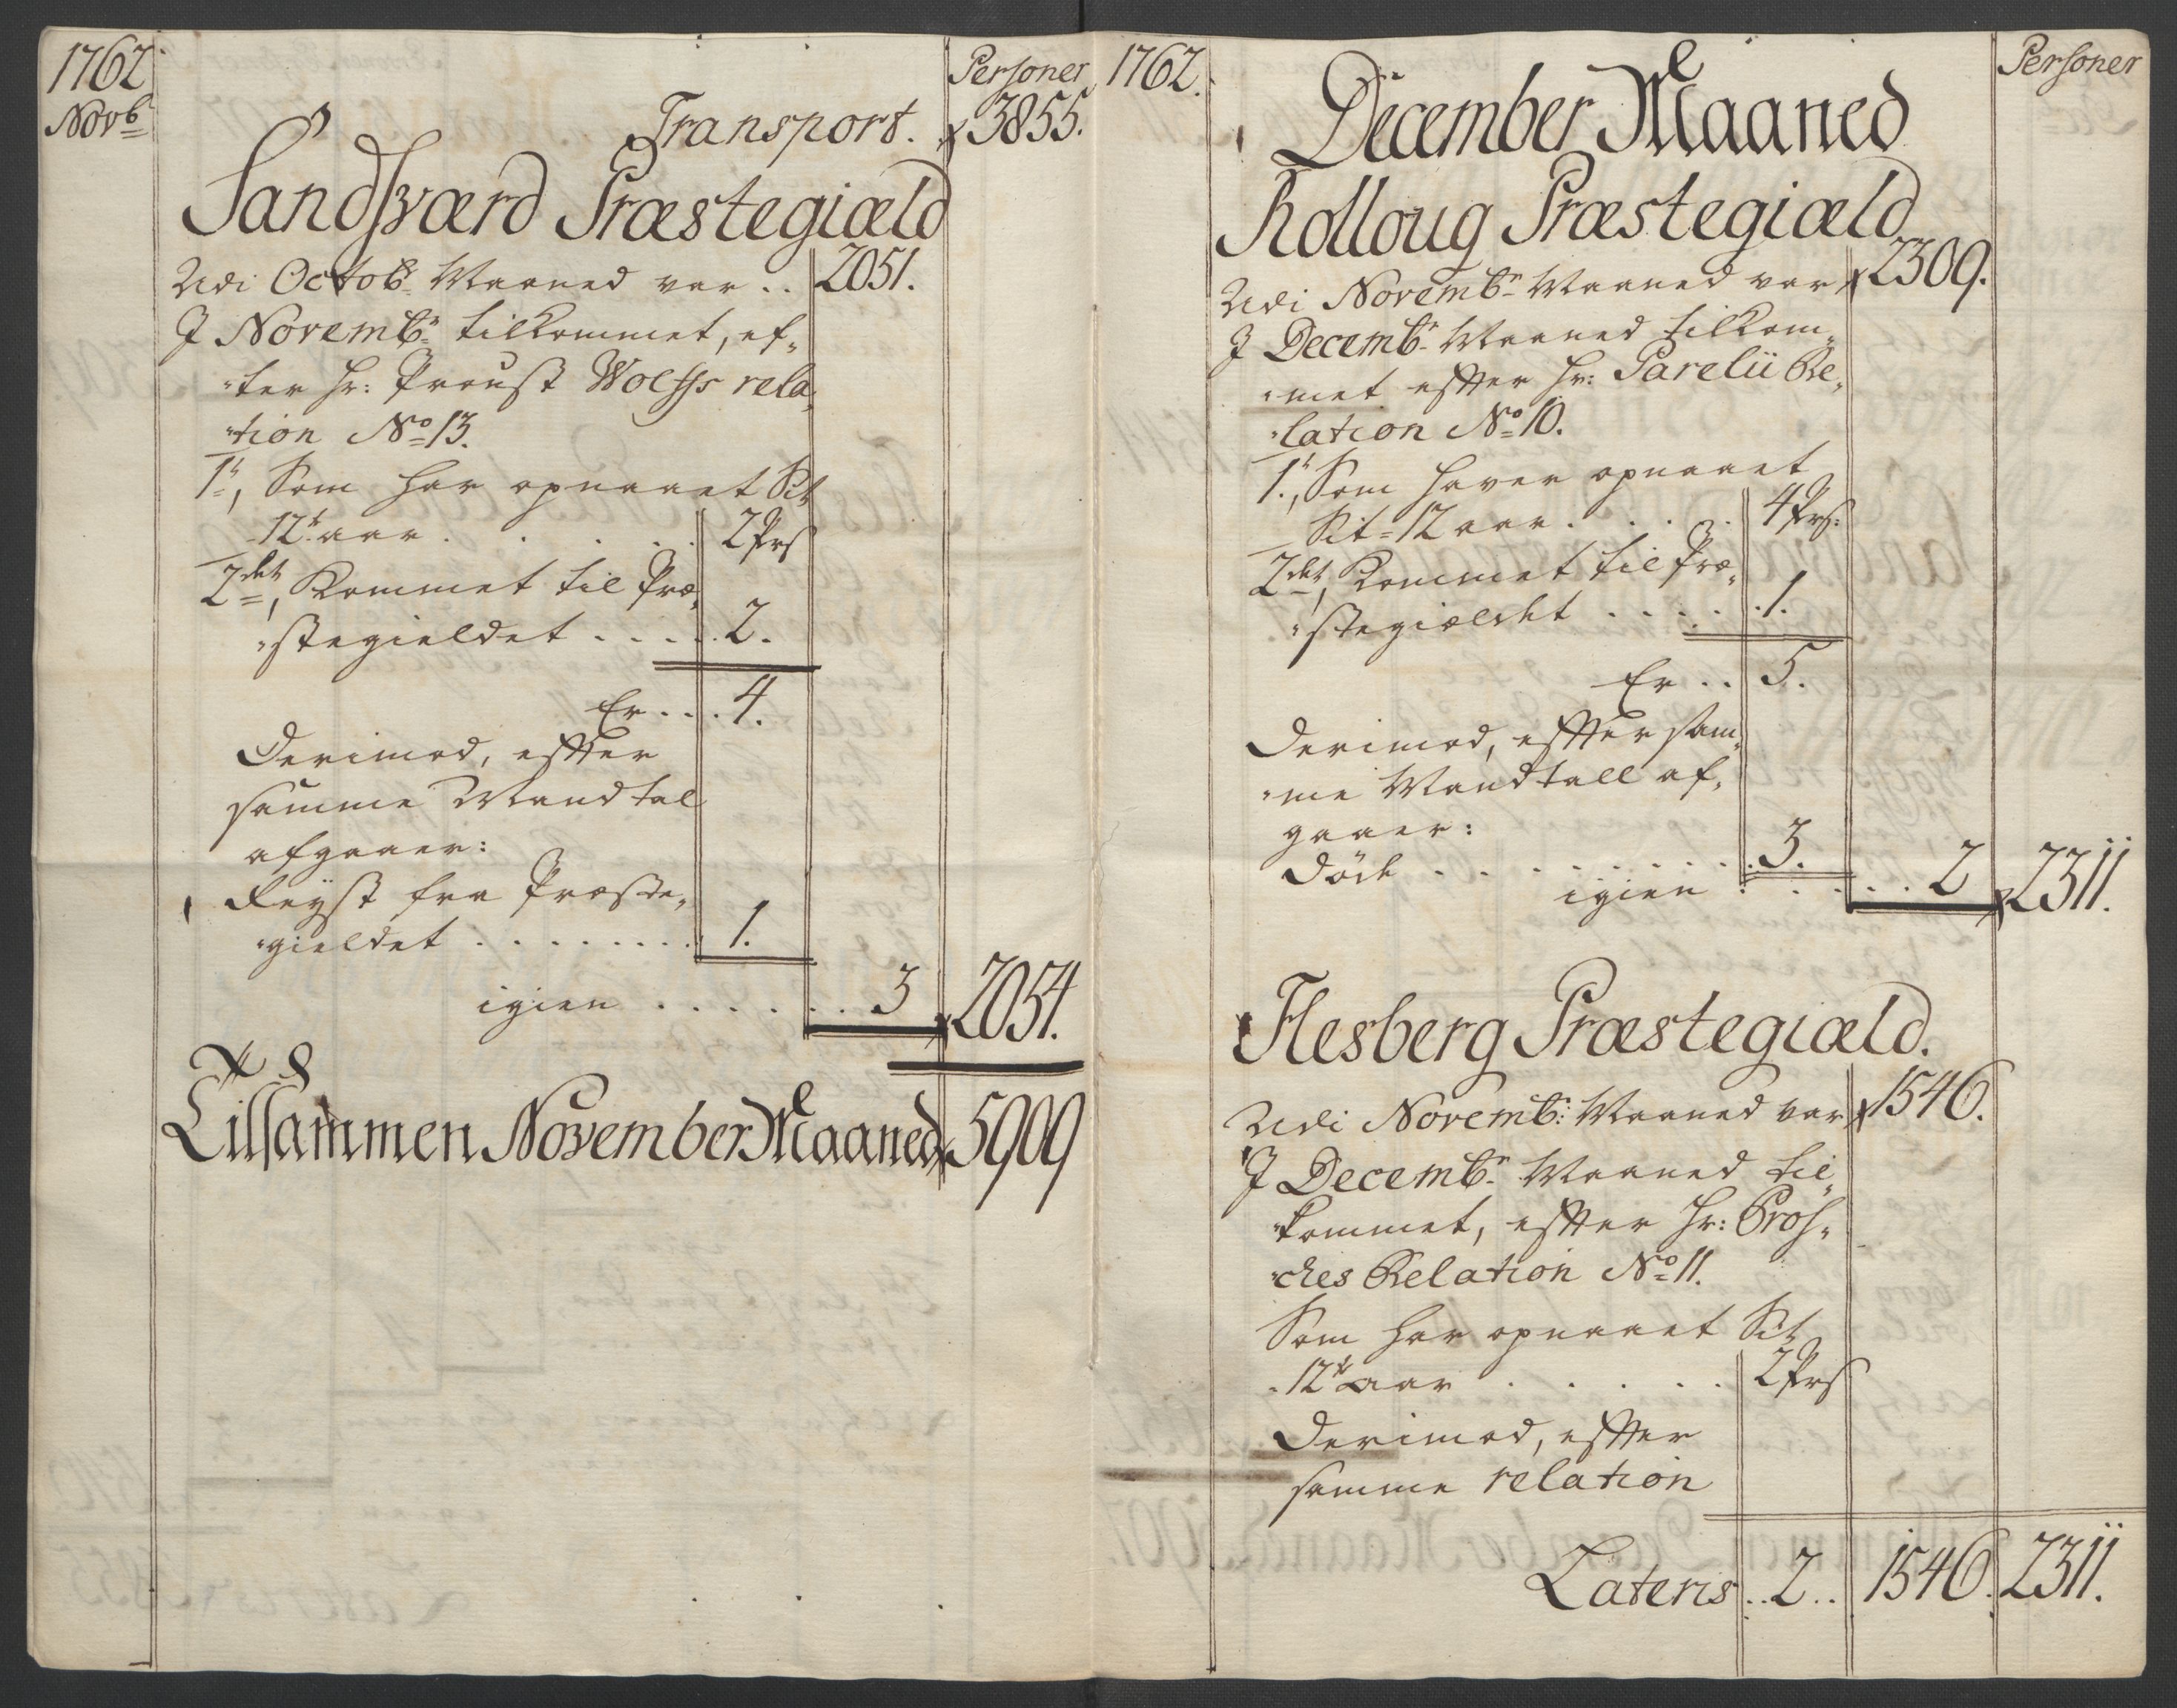 1762
Novb
Personer
Transport. 3855.
Sandsværd Præstegiæld
Udi Octob Maaned var .. 2051.
J Novembr tilkommet, ef-
-ter Hr: Proust Wolffs rela-
-tion No 13.
1t, Som har opnaaet Sit
12te aar . . . . . 2 Prs
2det, Kommet til Præ-
-stegieldet . . . . . 2.
Er . . . 4.
Derimod, efter
samme Mandtal
afgaaer:
Reyst fra Præste-
-gieldet . . . . . . . . 1.
igien . . . . . . . 3 2054.
Tilsammen November Maaned 5909
1762.
Personer
December Maaned
Kolloug Præstegiæld
Udi Novembr Maaned var 2309.
J Decembr Maaned tilkom-
-met efter Hr: Parelii Re-
-lation No 10.
1t, Som haver opnaaet
Sit 12 aar . . . . 4 Prs:
2det, Kommet til Præ-
-stegiældet . . . . . . 1.
Er . . 5.
Derimod, efter sam-
-me Mandtall af-
gaaer:
Döde . . . . . . . . 3.
igien . . . . . . 2 2311.
Flesberg Præstegiæld.
Udi Novemb: Maaned var 1546.
J Decembr Maaned til-
-kommet, efter Hr: Pros-
-ches Relation No 11.
Som har opnaaet Sit
12te aar . . . . . 2 Prs
Derimod, efter
samme relation
Lateris . . 2 . . 1546. 2311.